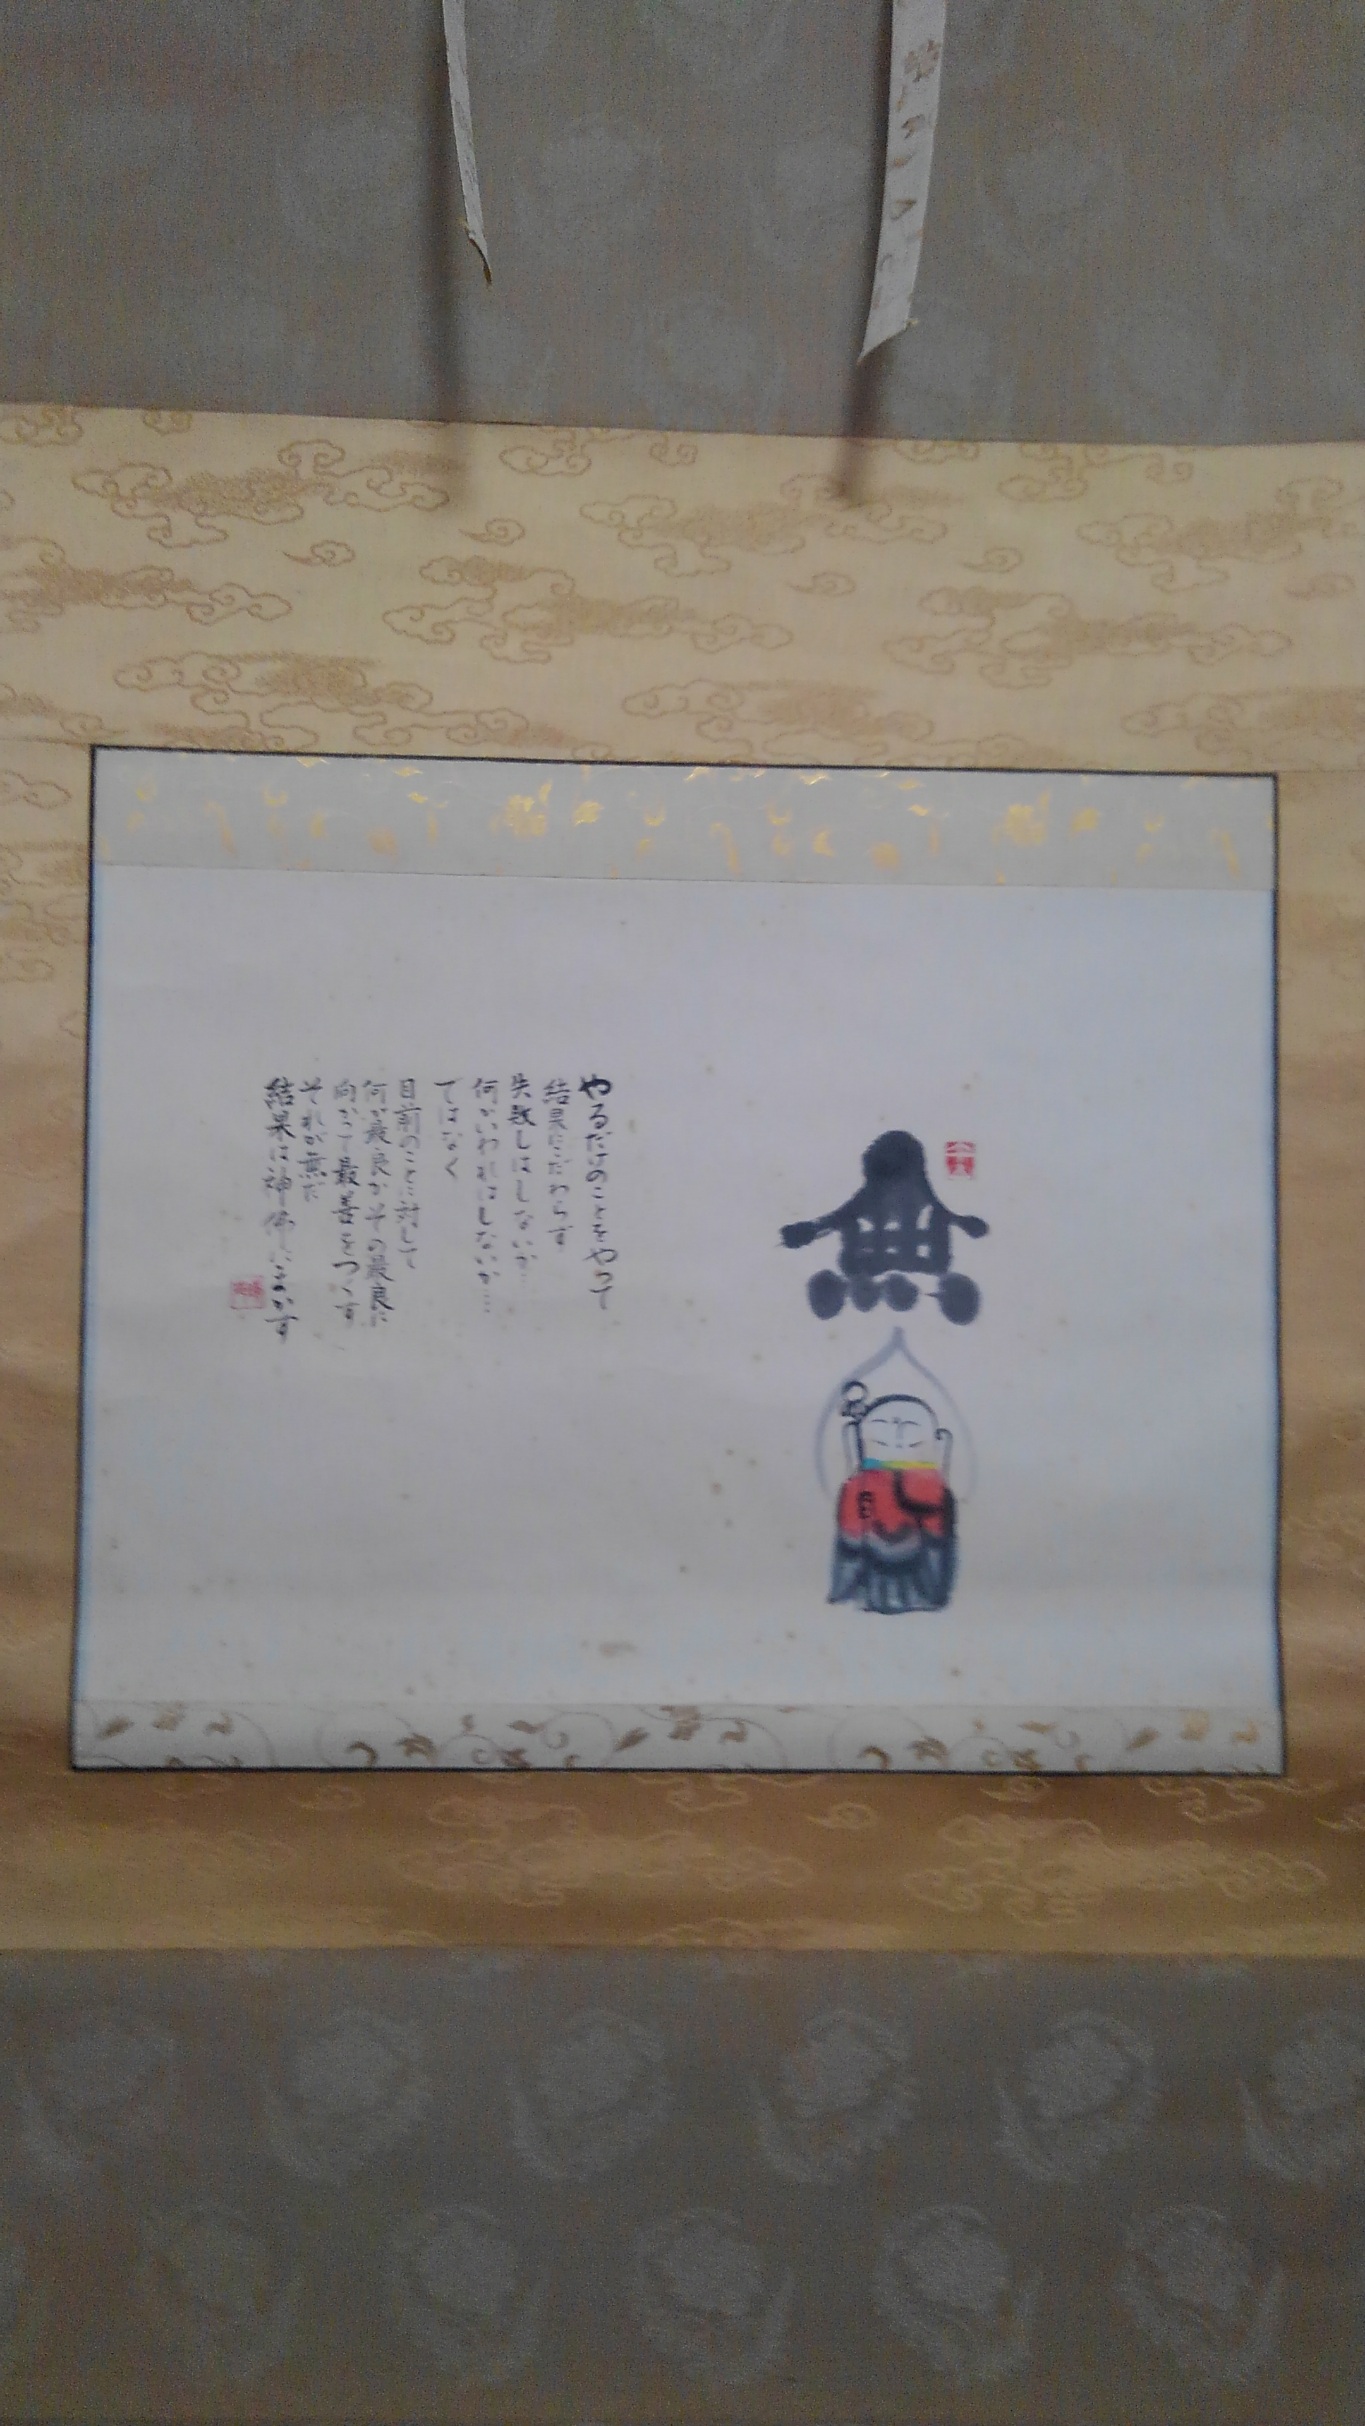 無
やるだけのことをやって
結果にこだわらず
失敗しはしないか…
何かいわれはしないか…
ではなく
目前のことに対して
何が最良かその最良に
向かって最善をつくす
それが無だ
結果は神佛にまかす